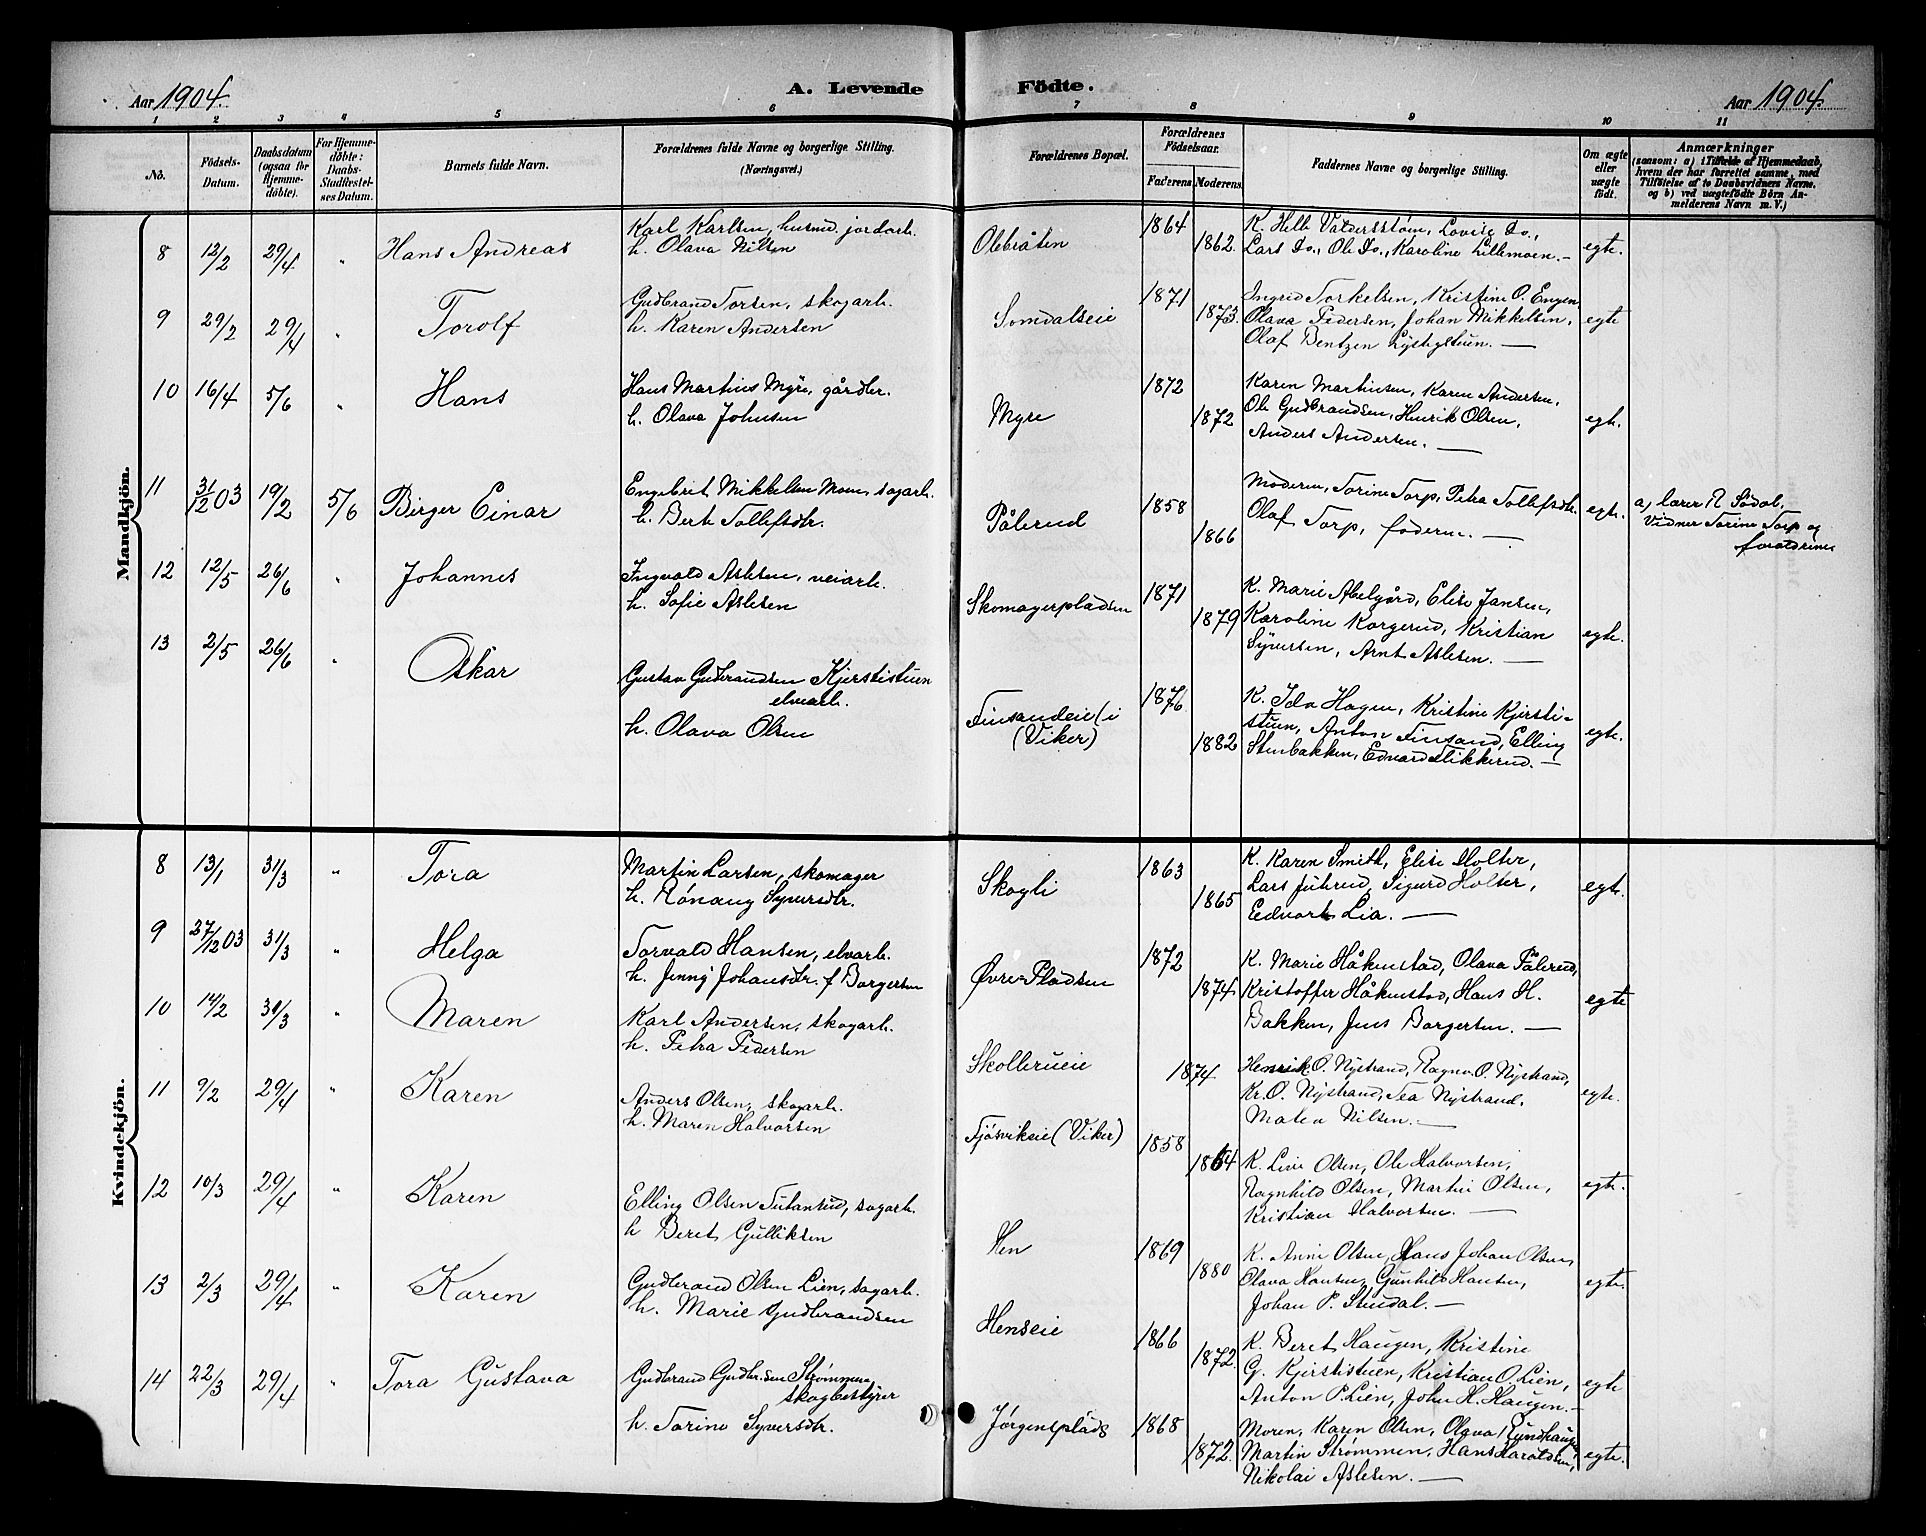 Aar 1904.
A. Levende Födte.
Aar 1904.
1 2 3 4 5 6 7 8 9 10 11
No.
Födsels-Datum.
Daabsdatum (ogsaa for Hjemmedøbte).
For Hjemmedøbte: Daabs-Stadfestelses Datum.
Barnets fulde Navn.
Forældrenes fulde Navne og borgerlige Stilling. (Næringsvei.)
Forældrenes Bopæl.
Forældrenes Födselsaar.
Faderens. Moderens.
Faddernes Navne og borgerlige Stilling.
Om ægte eller uægte födt.
Anmærkninger
(saasom: a) i Tilfælde af Hjemmedaab,
hvem der har forrettet samme, med
Tilföielse af to Daabsvidners Navne.
og b) ved uægtefödte Börn Anmelderens Navn m. V.)
Mandkjön.
8 12/2 29/4 " Hans Andreas
Karl Karlsen, husmd. jordarb.
h. Olava Nilsen
Olebråten 1864 1862.
K. Helle Valdersstøm, Lovise Do.,
Lars Do., Ole Do., Karoline Lillemoen. —
egte.
9 29/2 29/4 " Torolf
Gudbrand Torsen, skogarb.
h. Karen Andersen
Somdalseie 1871 1873.
Ingrid Torkelsen, Kristine O. Engen,
Olava Pedersen, Johan Mikkelsen,
Olaf Bentzen —
egte
10 16/4 5/6 " Hans
Hans Martins Myre, gårdbr.
h. Olava Johnsen
Myre 1872 1872
Karen Martinsen, Karen Andersen,
Ole Gudbrandsen, Henrik Olsen,
Anders Andersen. —
egte.
11 31/12 03 19/2 5/6 Birger Einar
Engebret Mikkelsen Moen, sagarb.
h. Berte Tollefsdtr.
Pålerud 1858 1866
Moderen, Torine Torp, Petra Tollefsdtr.
Olaf Torp, faderen. —
egte.
a, lærer N Sødal,
Vidner Torine Torp og
forældrene
12 12/5 26/6 " Johannes
Ingvald Aslesen, veiarb.
h. Sofie Aslesen
Skomagerpladsen 1871 1879
K. Marie Abelgård, Elise Jansen,
Karoline Korgerud, Kristian
Syversen, Arnt Aslesen. —
egte.
13 2/5 26/6 " Oskar
Gustav Gudbrandsen Kjerstistuen
elvearb.
h. Olava Olsen
Finsandeie (i
(Viker)
1876 1882
K. Ida Hagen, Kristine Kjersti-
stuen, Anton Finsand, Elling
Stenbakken, Edvard Flikkerud. —
egte.
Kvindekjön.
8 13/1 31/3 " Tora
Martin Larsen, skomager
h. Rönaug Syversdtr.
Skogli 1863 1865
K. Karen Smith, Elise Holter,
Lars Julerud, Sigurd Holter,
Eedvart Lia. —
egte.
9 27/12 03 31/3 " Helga
Torvald Hansen, elvarb.
h. Jenny Johansdtr. f Borgersen
Øvre Pladsen 1872 1874
K. Marie Håkenstad, Olava Pålerud,
Kristoffer Håkenstad, Hans H.
Bakken, Jens Borgersen. —
egte
10 14/2 31/3 " Maren
Karl Andersen, skogarb.
h. Petra Pedersen
Skollerueie 1874
Henrik O. Nystrand, Ragna O. Nystrand,
Kr. O. Nystrand, Tea Nystrand,
Matea Nilsen. —
egte.
11 9/2 29/4 " Karen
Anders Olsen, skogarb.
h. Maren Halvorsen
Fjösvikeie (Viker) 1858 1864
K. Live Olsen, Ole Halvorsen,
Ragnhild Olsen, Martin Olsen,
Kristian Halvorsen. —
egte.
12 10/3 29/4 " Karen
Elling Olsen Tutansrud, sagarb.
h Beret Gulliksen
Hen 1869 1880
K. Anne Olsen, Hans Johan Olsen,
Olava Hansen, Gunhild Hansen,
Johan P. Stendal. —
egte.
13 2/3 29/4 " Karen
Gudbrand Olsen Lien, sagarb.
h. Marie Gudbrandsen
Henseie 1866 1872.
K. Beret Haugen, Kristine
G. Kjerstistuen, Kristian O. Lien,
Anton P. Lien, John H. Haugen. —
egte
14 22/3 29/4 " Tora Gustava
Gudbrand Gudbr.sen Strømmen,
skogbestyrer
h. Torine Syversdtr.
Jørgensplads 1868 1872.
Moren, Karen Olsen, Olava Rundhaugen,
Martin Strømmen, Hans Haraldsen,
Nikolai Aslesen. —
egte.